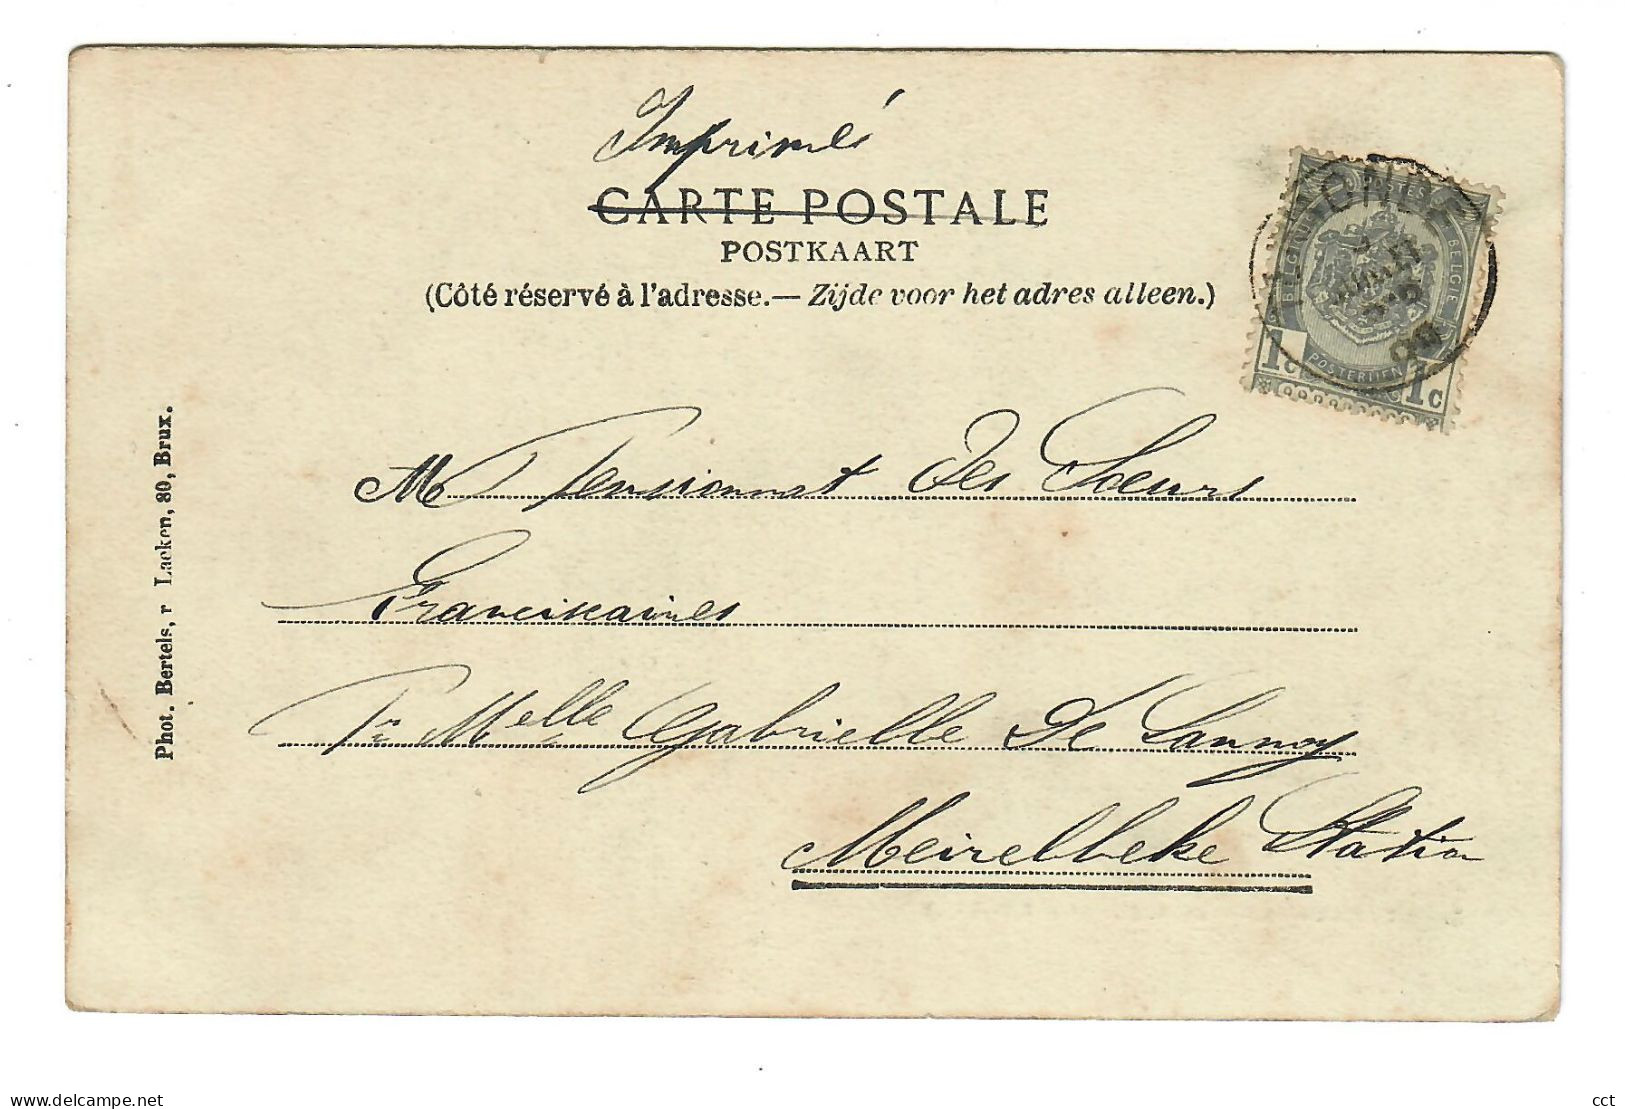 Imprimés
CARTE POSTALE
POSTKAART
(Côté réservé à l'adresse.— Zijde voor het adres alleen.)
POSTES
BELGIQUE
BELGIE
1c
POSTERIJEN
1c
Phot. Bertels, r Laeken, 80, Brux.
M Pensionnat des Soeurs
Franciscaines
Pr Melle Gabrielle De Lannoy
Meirelbeke Station
delcampe.net
cct